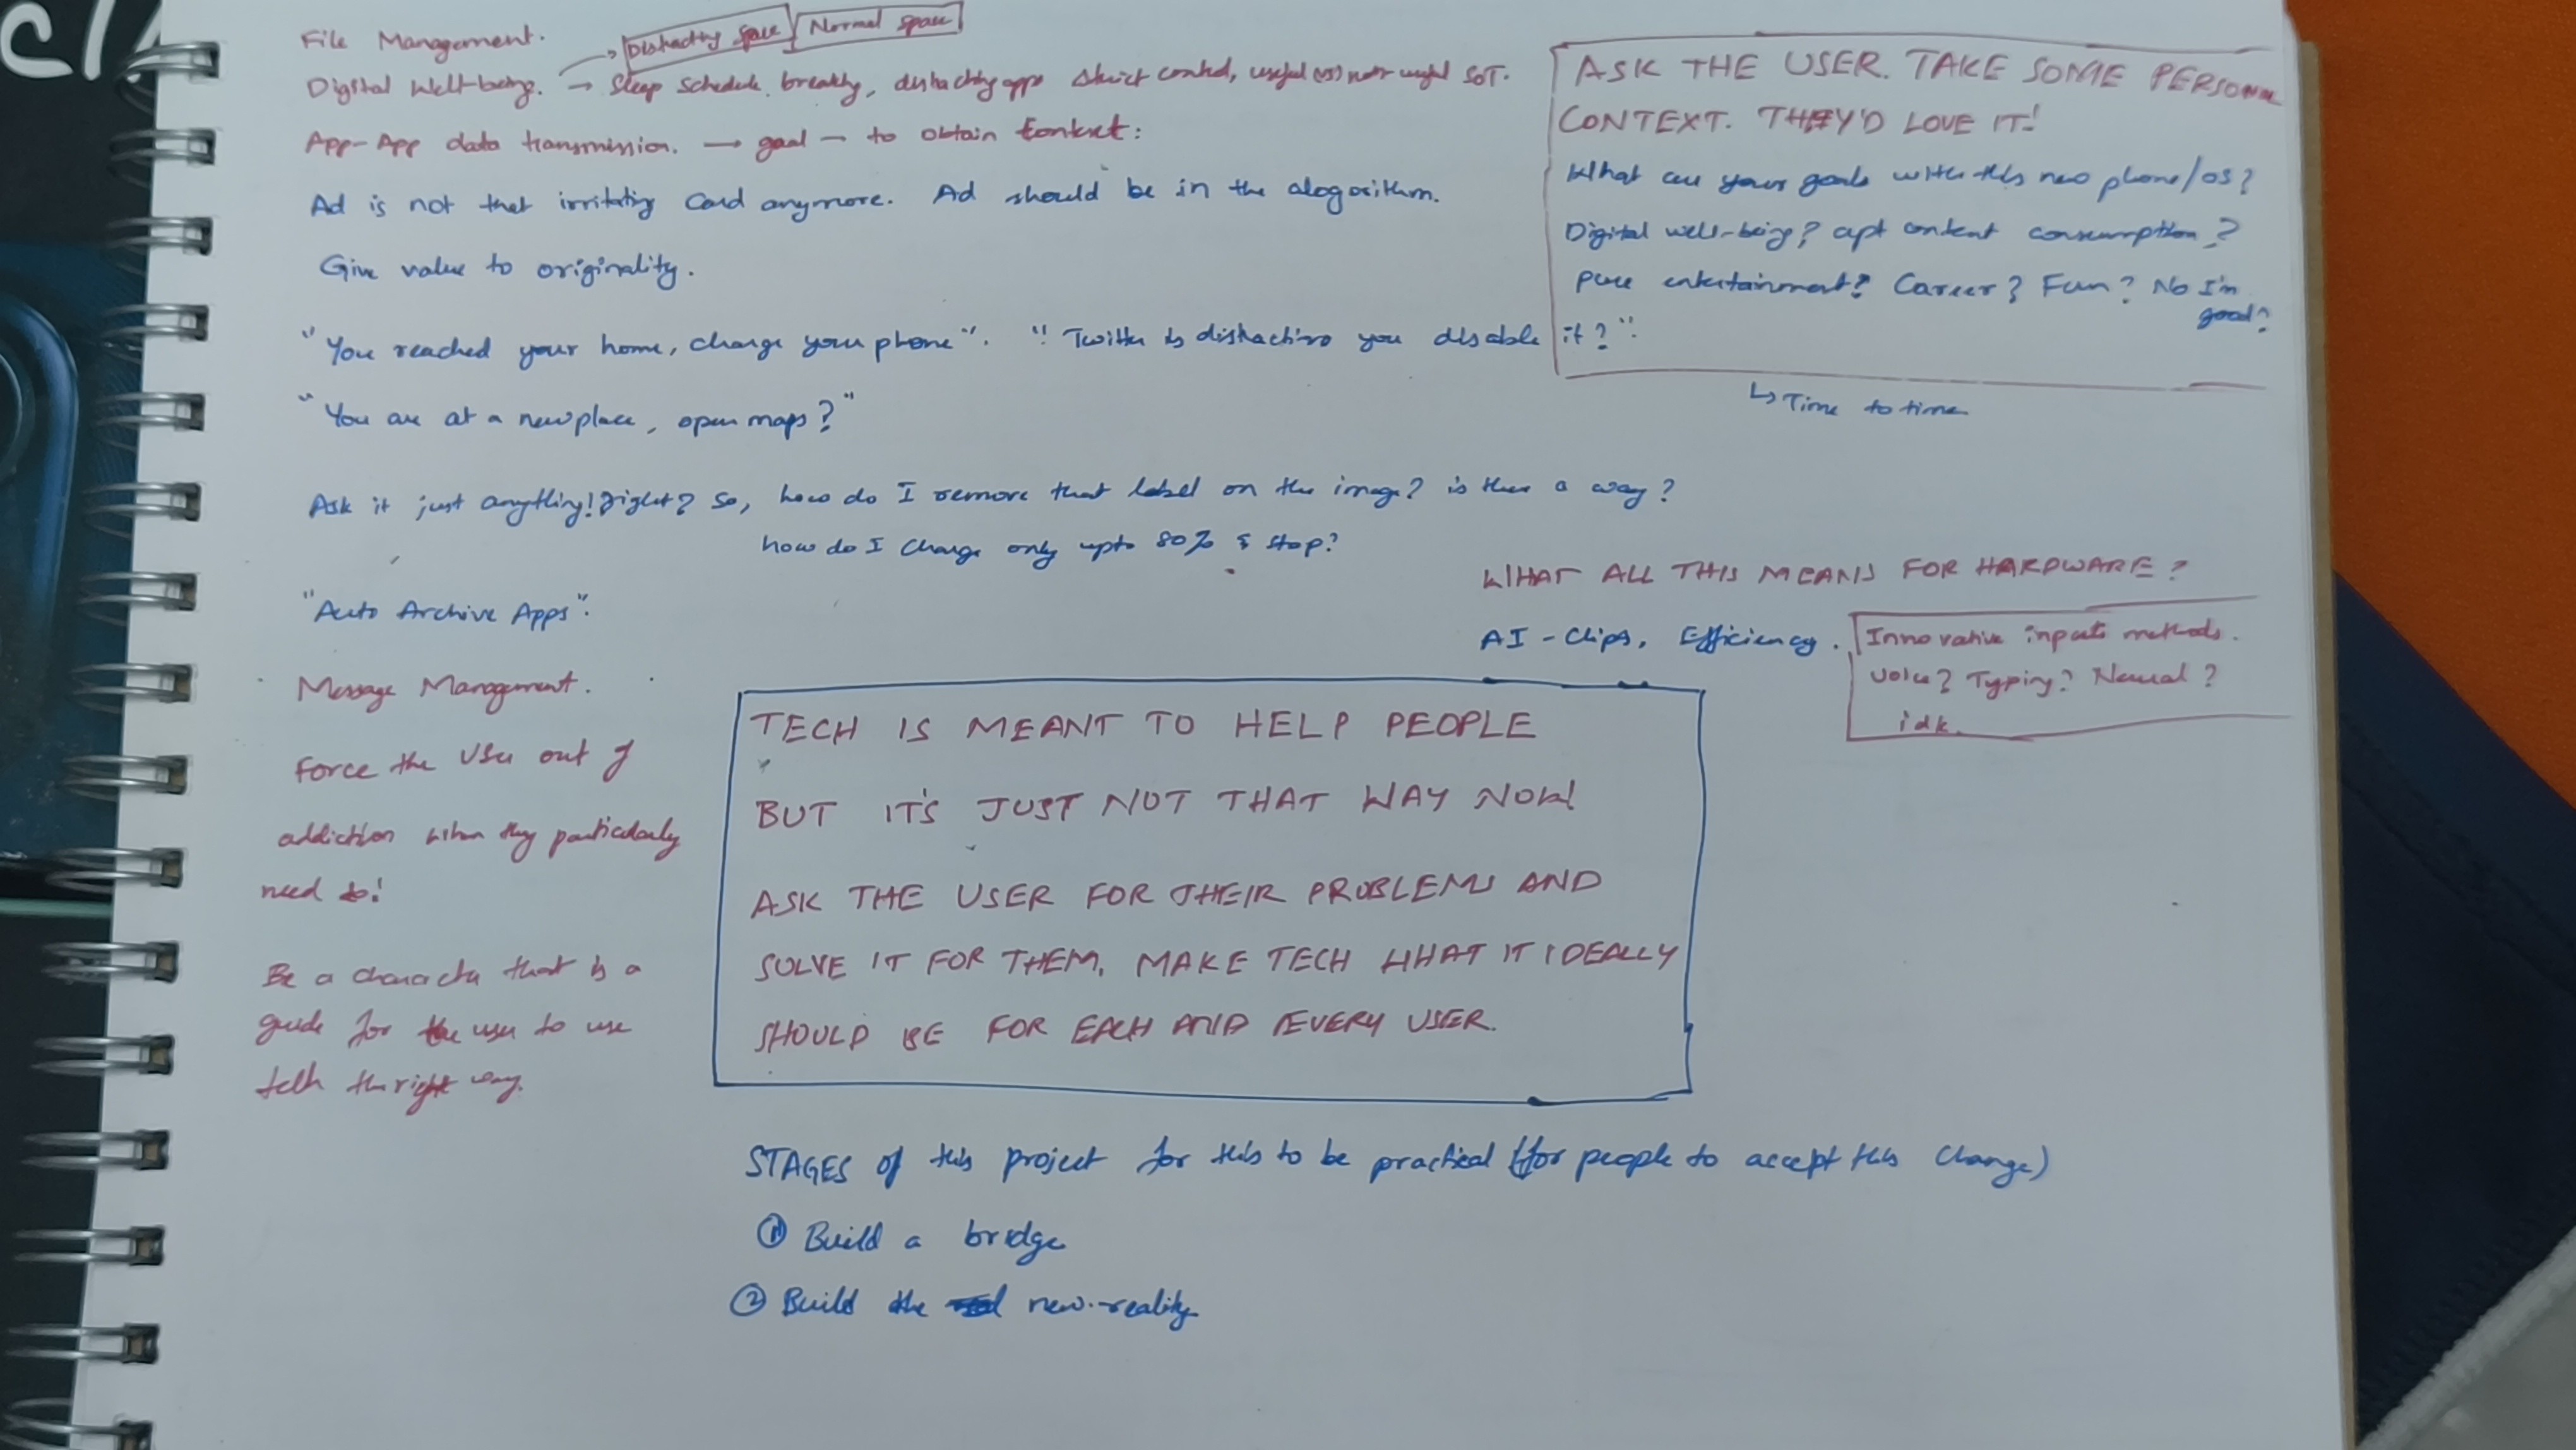 File Management.
Distracting space Normal space
Digital Well-being. → Sleep Schedule, breakly, distracting apps strict control, useful (vs) not useful SoT.
App-App data transmission. → goal → to obtain Context:
Ad is not that irritating Card anymore. Ad should be in the alogorithm.
Give value to originality.
"You reached your home, charge your phone". "Twitter is distracting you disable it?"
"You are at a new place, open maps?"
Ask it just anything! right? So, how do I remove that label on the image? is there a way?
how do I Charge only upto 80% & stop?
"Auto Archive Apps".
Message Management.
Force the User out of
addiction when they particularly
need to!
Be a character that is a
guide for the user to use
tech the right way.
ASK THE USER. TAKE SOME PERSONAL
CONTEXT. THEY'D LOVE IT!
What are your goals with this new phone/os?
Digital well-being? apt content consumption?
pure entertainment? Career? Fun? No I'm
good?
↳ Time to time
WHAT ALL THIS MEANS FOR HARDWARE?
AI - Chips, Efficiency.
Innovative inputs methods.
Voice? Typing? Neural?
idk.
TECH IS MEANT TO HELP PEOPLE
BUT IT'S JUST NOT THAT WAY NOW!
ASK THE USER FOR THEIR PROBLEMS AND
SOLVE IT FOR THEM, MAKE TECH WHAT IT IDEALLY
SHOULD BE FOR EACH AND EVERY USER.
STAGES of this project for this to be practical (for people to accept this change)
① Build a bridge
② Build the new-reality